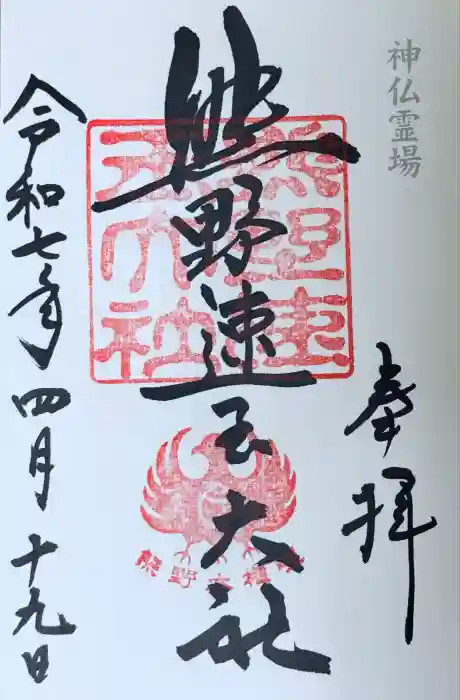 神仏霊場
奉拝
熊野速玉大社
熊野速
玉大社
熊野大権現
令和七年四月十九日